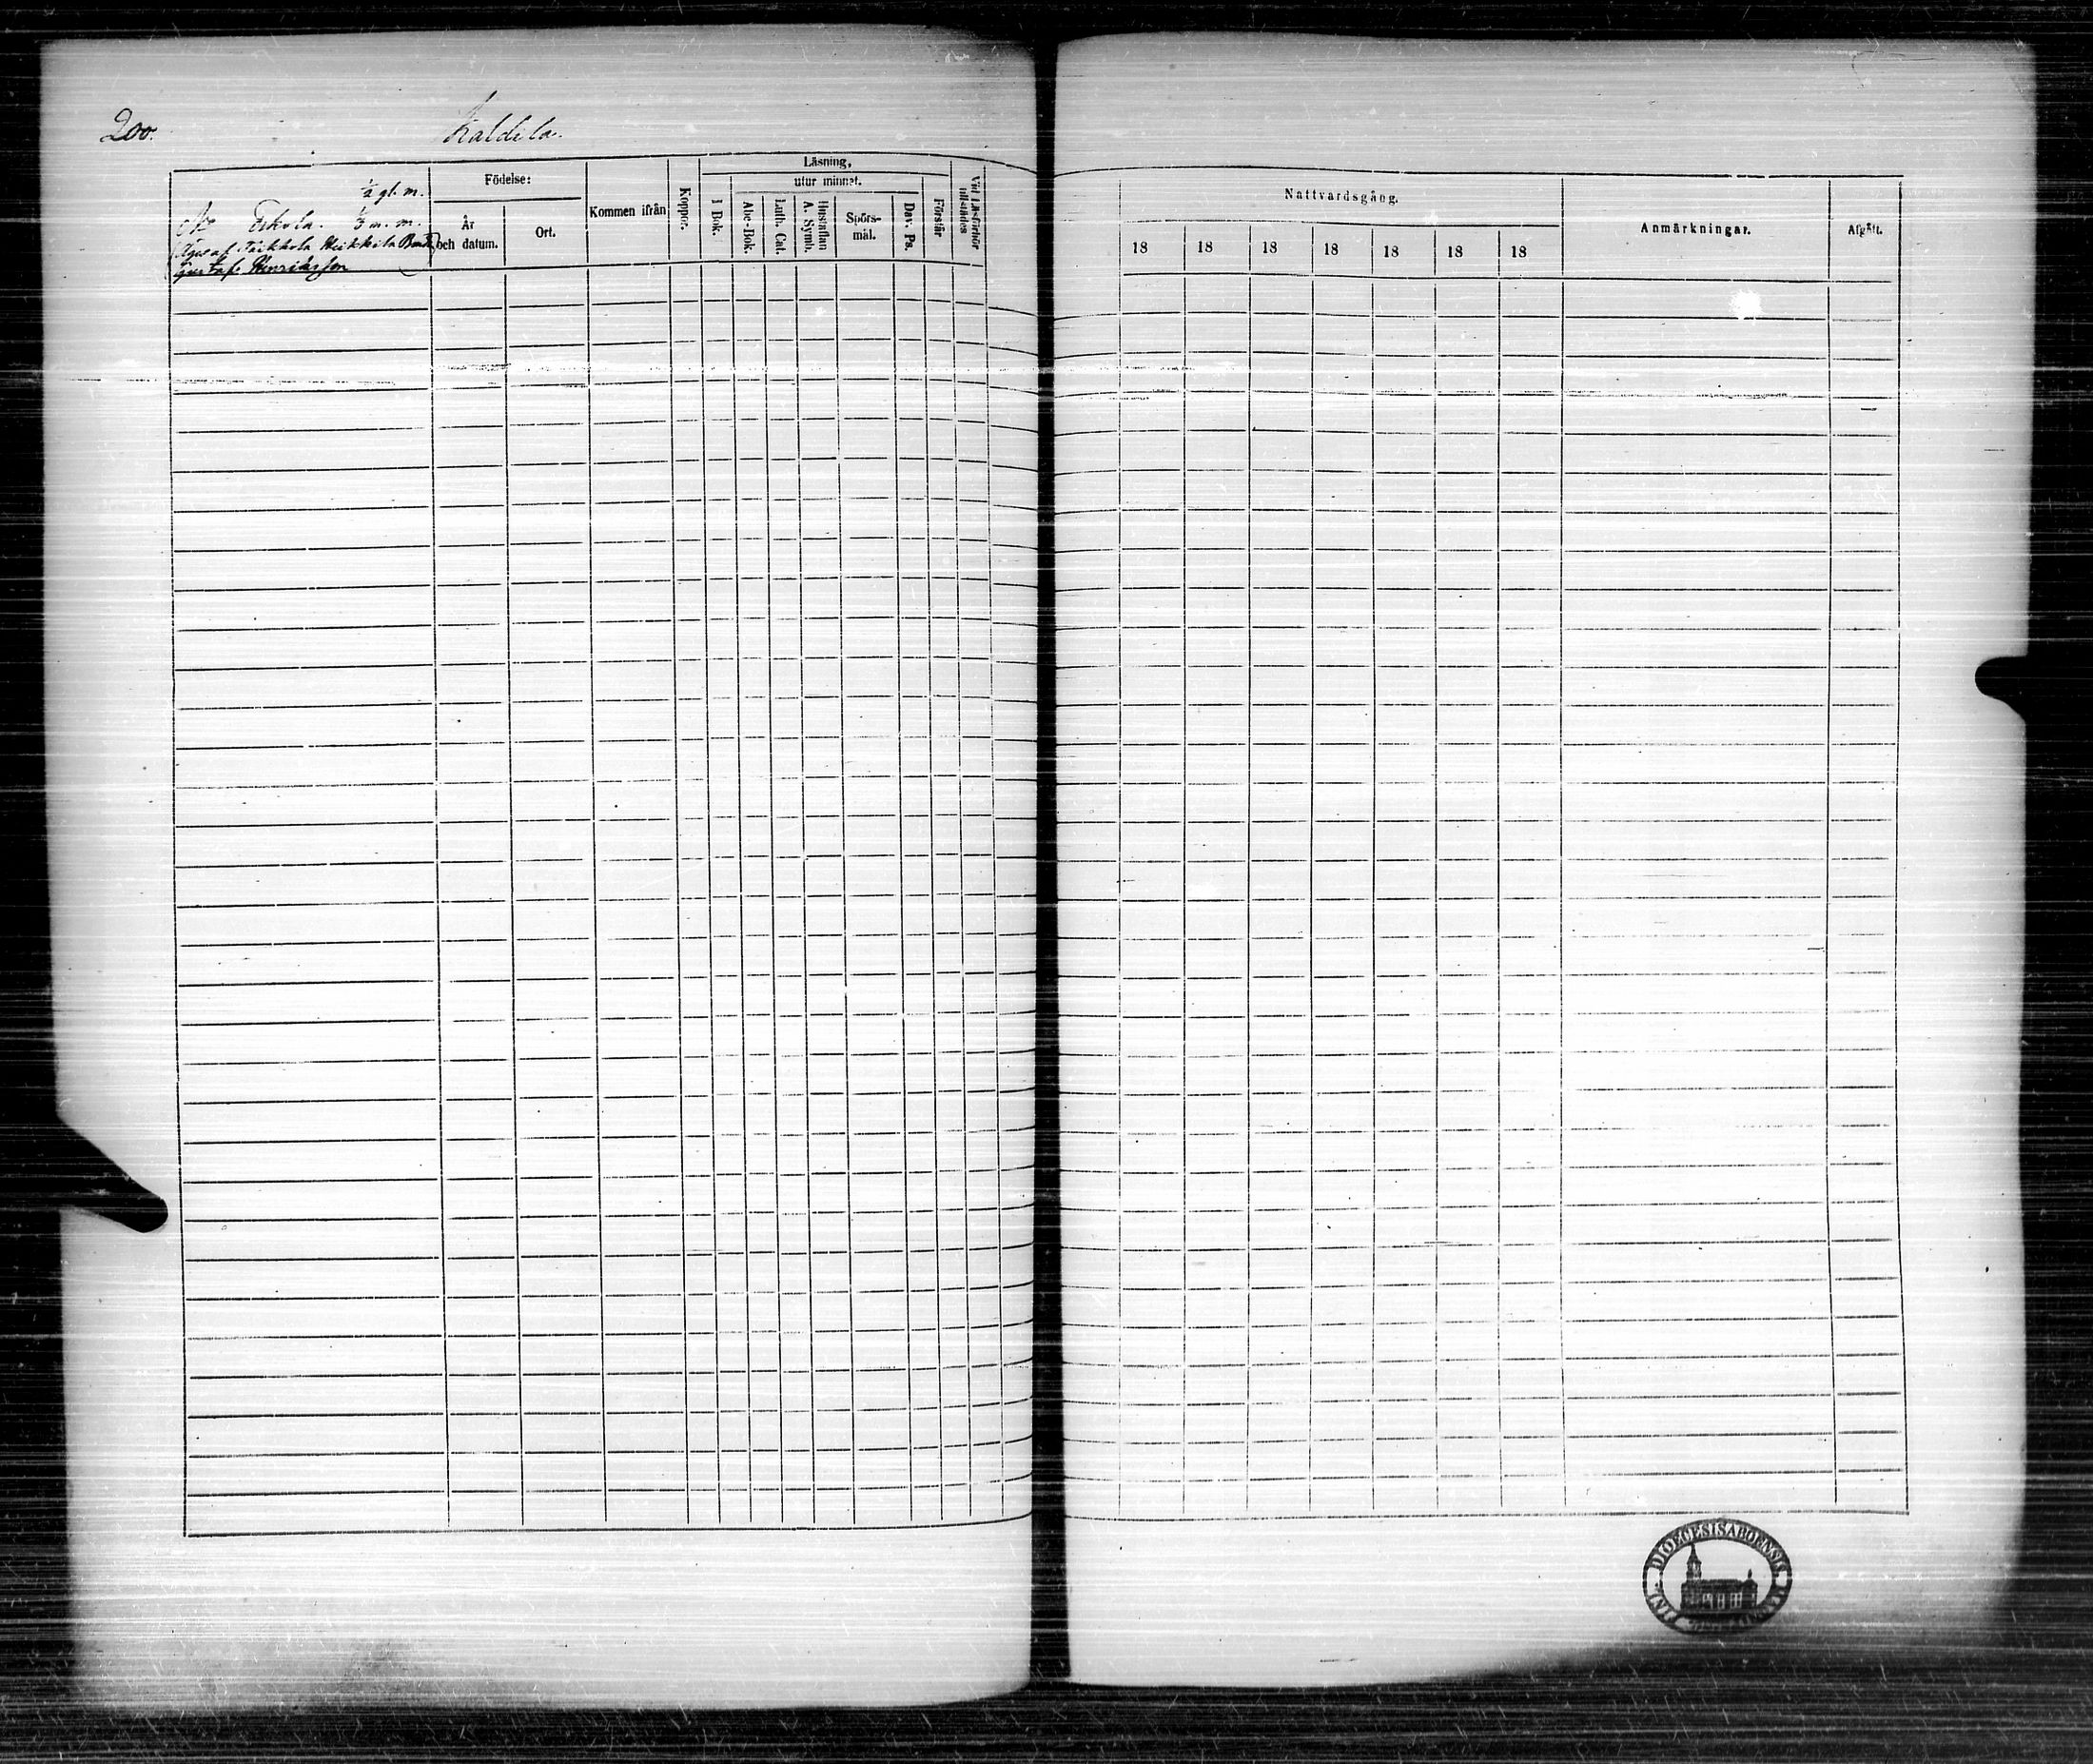 200.
Kaldela.
½ gl. m.
No Eskola. ⅓ m. m.
Heikkilä
Gustaf Henriksson
Födelse:
År och datum.
Ort.
Kommen ifrån
Koppor.
Läsning,
utur minnet.
I Bok.
Abc-Bok.
Luth. Cat.
Hustaflan A. Symb.
Spörs-
mål.
Dav. Ps.
Förstår
Vid Läsförhör tillstädes
Nattvardsgång.
18 18 18 18 18 18 18
Anmärkningar.
Afgått.
DIOECESIS ABOENSIS